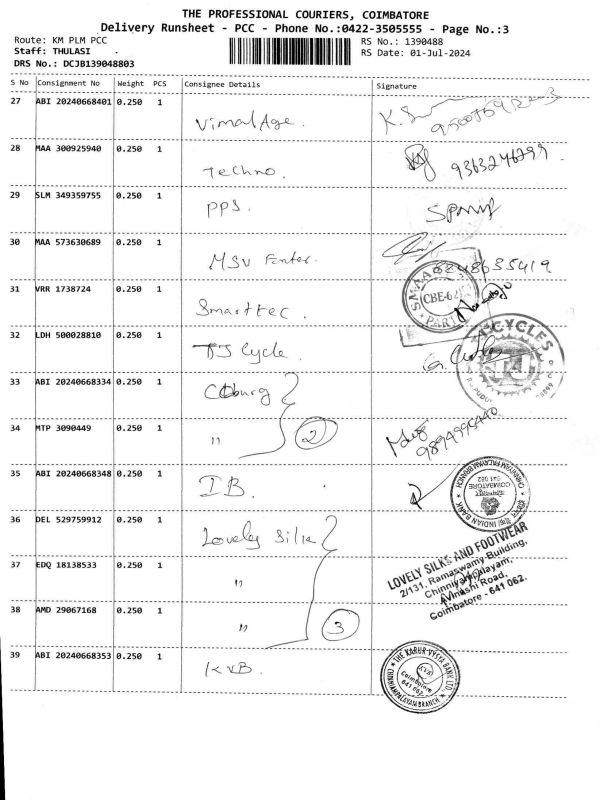 THE PROFESSIONAL COURIERS, COIMBATORE
Delivery Runsheet - PCC - Phone No.:0422-3505555 - Page No.:3
Route: KM PLM PCC
RS No.: 1390488
Staff: THULASI
RS Date: 01-Jul-2024
DRS No.: DCJB139048803
S No Consignment No Weight PCS Consignee Details Signature
27 ABI 20240668401 0.250 1 Vimal Age.
28 MAA 300925940 0.250 1 Techno. 9363246799
29 SLM 349359755 0.250 1 PPS.
30 MAA 573630689 0.250 1 MSV 8248635419
31 VRR 1738724 0.250 1 Smarttec.
CBE-62
32 LDH 500028810 0.250 1 TJ Cycle.
CYCLES
TJ
33 ABI 20240668334 0.250 1 Coburg
34 MTP 3090449 0.250 1 " 2 9894990440
35 ABI 20240668348 0.250 1 IB.
CHINNIYAM PALAYAM BRANCH
641 062
COIMBATORE
INDIAN BANK
36 DEL 529759912 0.250 1 Lovely Silk
37 EDQ 18138533 0.250 1 "
LOVELY SILKS AND FOOTWEAR
2/131, Ramaswamy Building,
Chinniyampalayam,
Avinashi Road,
Coimbatore - 641 062.
38 AMD 29067168 0.250 1 " 3
39 ABI 20240668353 0.250 1 KVB
THE KARUR VYSYA BANK LTD.
Coimbatore
641 062
CHINNIAMPALAYAM BRANCH